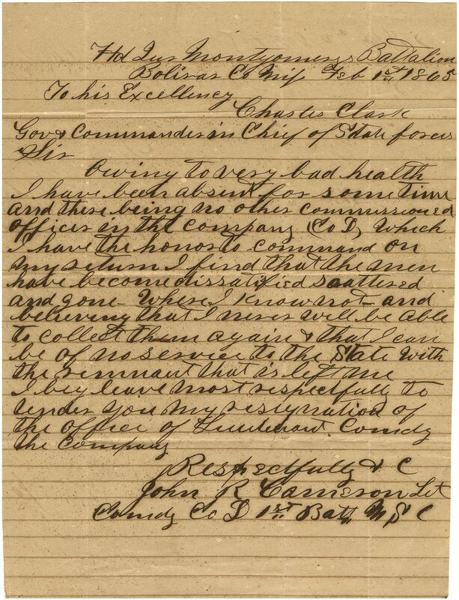 Hd Qus Montgomerys Battalion
Bolivar Co Miss Feb 1st 1865
To his Excellency
Charles Clark
Gov & Commander in Chief of State forces
Sir
Owing to very bad health
I have been absent for some time
and there being no other commissioned
officer in the Company (Co D) which
I have the honor to command on
my return I find that the men
have become dissatified scattered
and gone Where I know not - and
believing that I never will be able
to collect them again & that I can
be of no service to the State with
the remnant that is left me
I beg leave most respectfully to
tender you my resignation of
the office of Lieutenant Comdg
the Company
Respectfully & C
John R Cameron Lt
Comdg Co D 1st Batt M S C